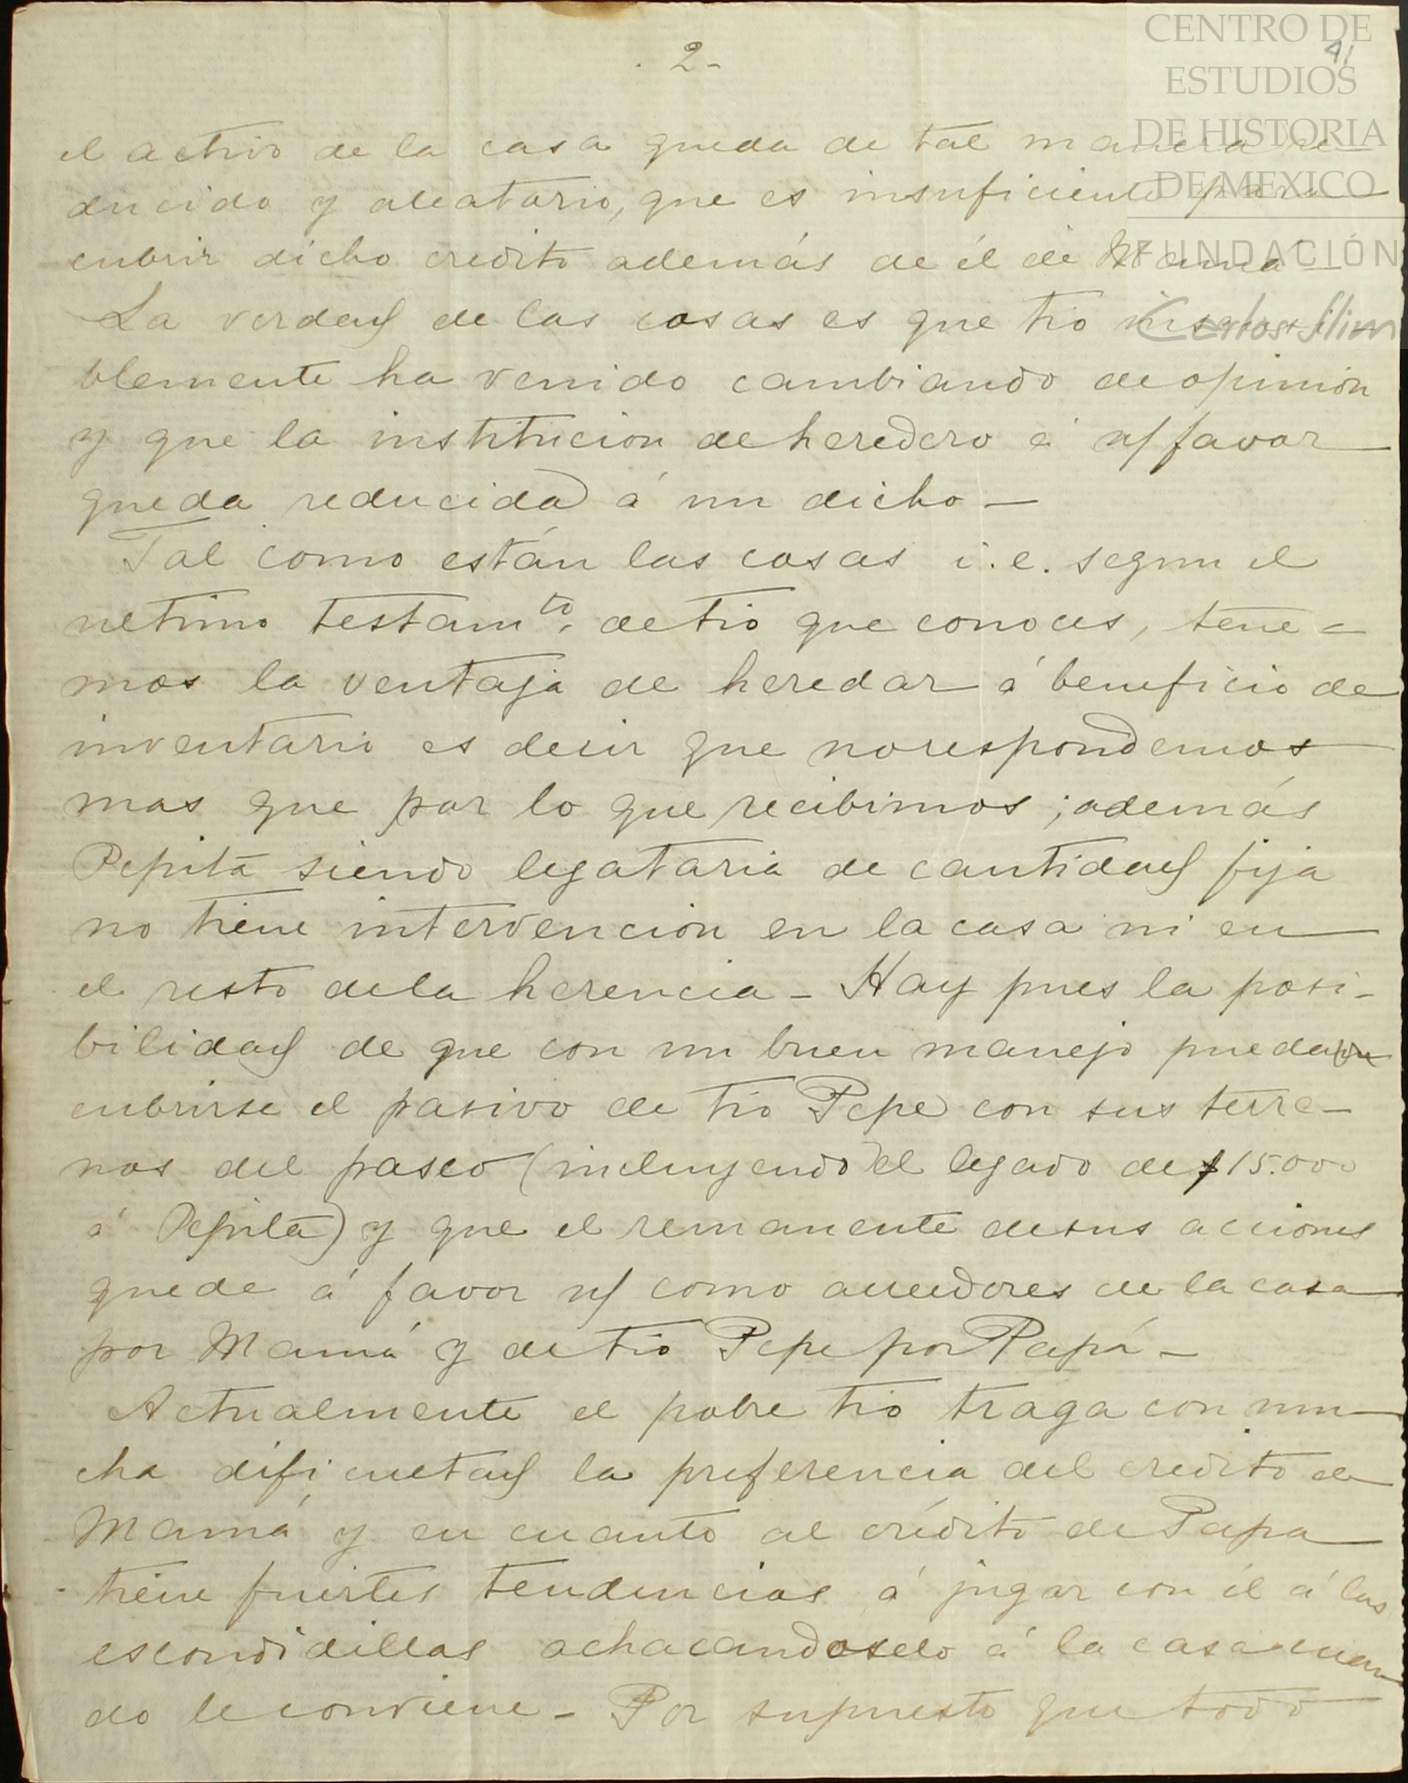 2-
41
CENTRO DE
ESTUDIOS
DE HISTORIA
DE MEXICO
FUNDACIÓN
Carlos Slim
el activo de la casa queda de tal manera re-
ducido y aleatorio, que es insuficiente para
cubrir dicho credito además de él de Mamá -
La verdad de las cosas es que tio insensi-
blemente ha venido cambiando de opinion
y que la institucion de heredero á n/ favor
queda reducida á un dicho -
Tal como están las cosas i.e. segun el
ultimo testamto. de tio que conoces, tene=
mos la ventaja de heredar á beneficio de
inventario es decir que no respondemos
mas que por lo que recibimos; además
Pepita siendo legataria de cantidad fija
no tiene intervencion en la casa ni en
el resto de la herencia - Hay pues la posi-
bilidad de que con un buen manejo pueda
cubrirse el pasivo de tio Pepe con sus terre-
nos del paseo (incluyendo el legado de $15.000
á Pepita) y que el remanente de sus acciones
quede á favor n/ como acreedores de la casa
por Mamá y de tio Pepe por Papá -
Actualmente el pobre tio traga con mu-
cha dificultad la preferencia del credito de
Mamá y en cuanto al crédito de Papa
tiene fuertes tendencias á jugar con él á las
escondidillas achacandoselo á la casa cuan
do le conviene - Por supuesto que todo